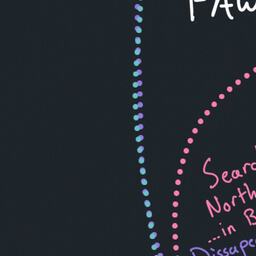 FAW
Searc
North
...in B
Dissape